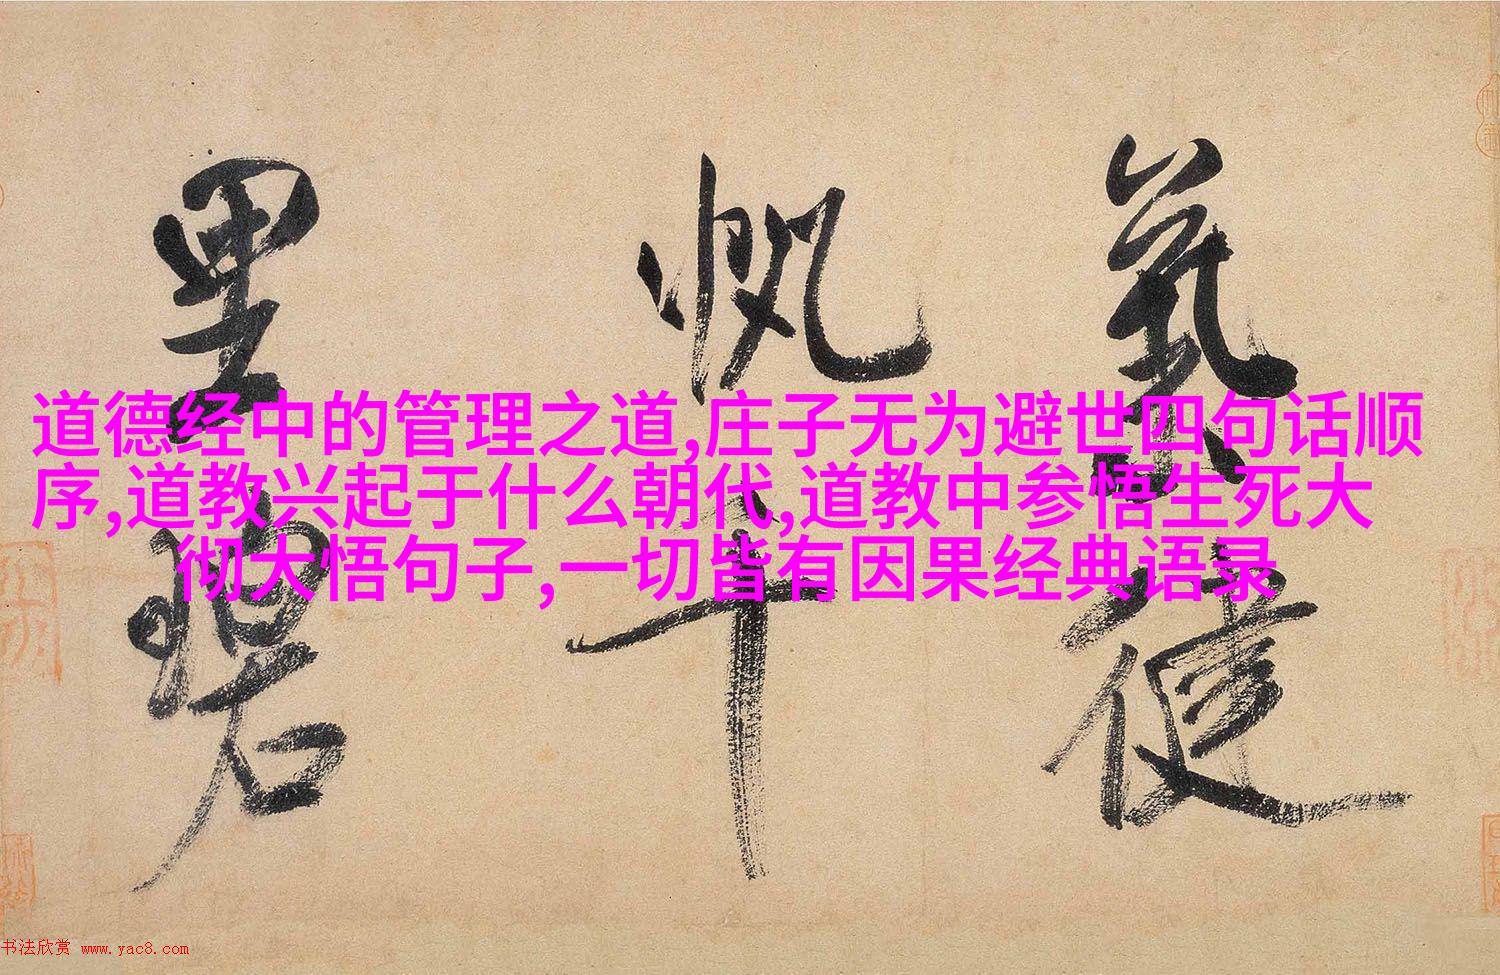 道德经中的管理之道,庄子无为避世四句话顺
序,道教兴起于什么朝代,道教中参悟生死大
彻大悟句子,一切皆有因果经典语录
氣健
帆千
里碧
书法欣赏 www.yac8.com